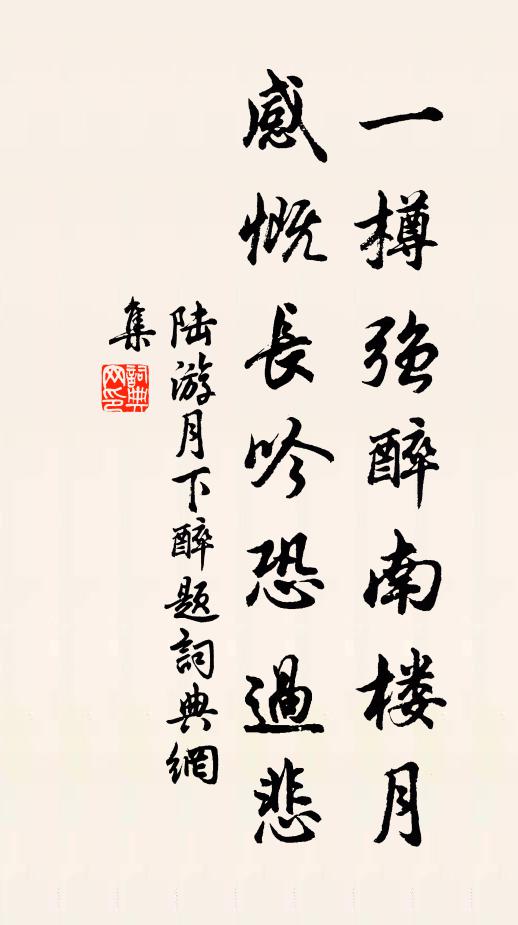 一樽强醉南楼月
感慨長吟恐過悲
陆游月下醉题詞典網
集
詞典
网印